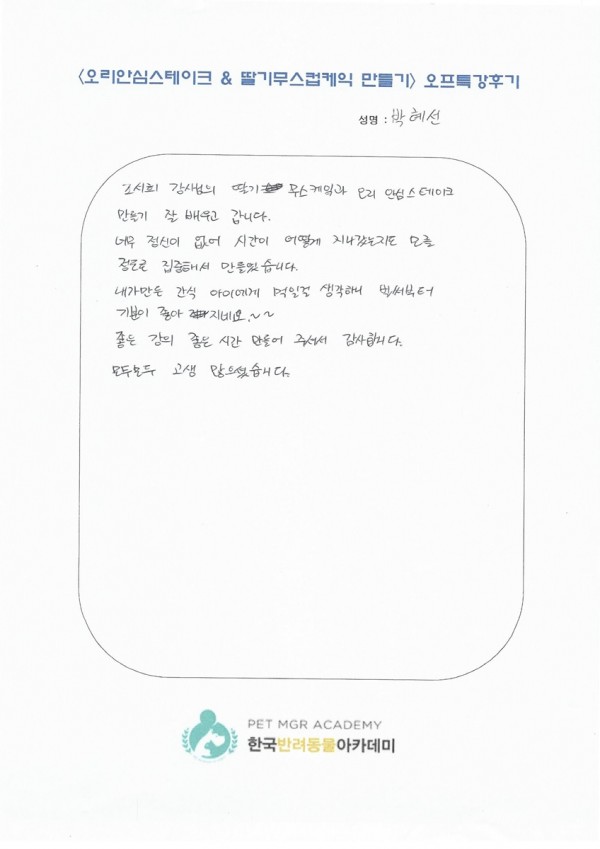 <오리안심스테이크 & 딸기무스컵케익 만들기> 오프특강후기
성명 : 박혜선
조시희 강사님의 딸기 무스케익과 오리 안심스테이크
만들기 잘 배우고 갑니다.
너무 정신이 없어 시간이 어떻게 지나갔는지도 모를
정도로 집중해서 만들었습니다.
내가만든 간식 아이에게 먹일걸 생각하니 벌써부터
기분이 좋아 지네요.~~
좋은 강의 좋은 시간 만들어 주셔서 감사합니다.
모두모두 고생 많으셨습니다.
PET MGR ACADEMY
한국반려동물아카데미